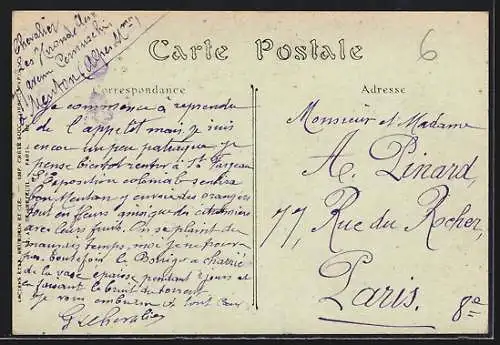 Chevalier
Les Hirondelles
Menton (Alpes Mmes)
6
Carte Postale
Correspondance
Adresse
Je commence à reprendre
de l'appetit mais je suis
encor un peu patraque je
pense bientot rentrer à St Fargeau
l'Exposition coloniale
bon Menton y envoie des orangers
tout en fleurs ainsi que des citronniers
avec leurs fruits. On se plaint du
mauvais temps, moi je ne trouve
pas. toutefois le Borrigo a charrié
de la vase epaisse pendant 2 jours et
en faisant le bruit du torrent
Je vous embrasse à tous deux
G Chevalier
Monsieur et Madame
A. Pinard,
77, Rue du Rocher,
Paris.
8e